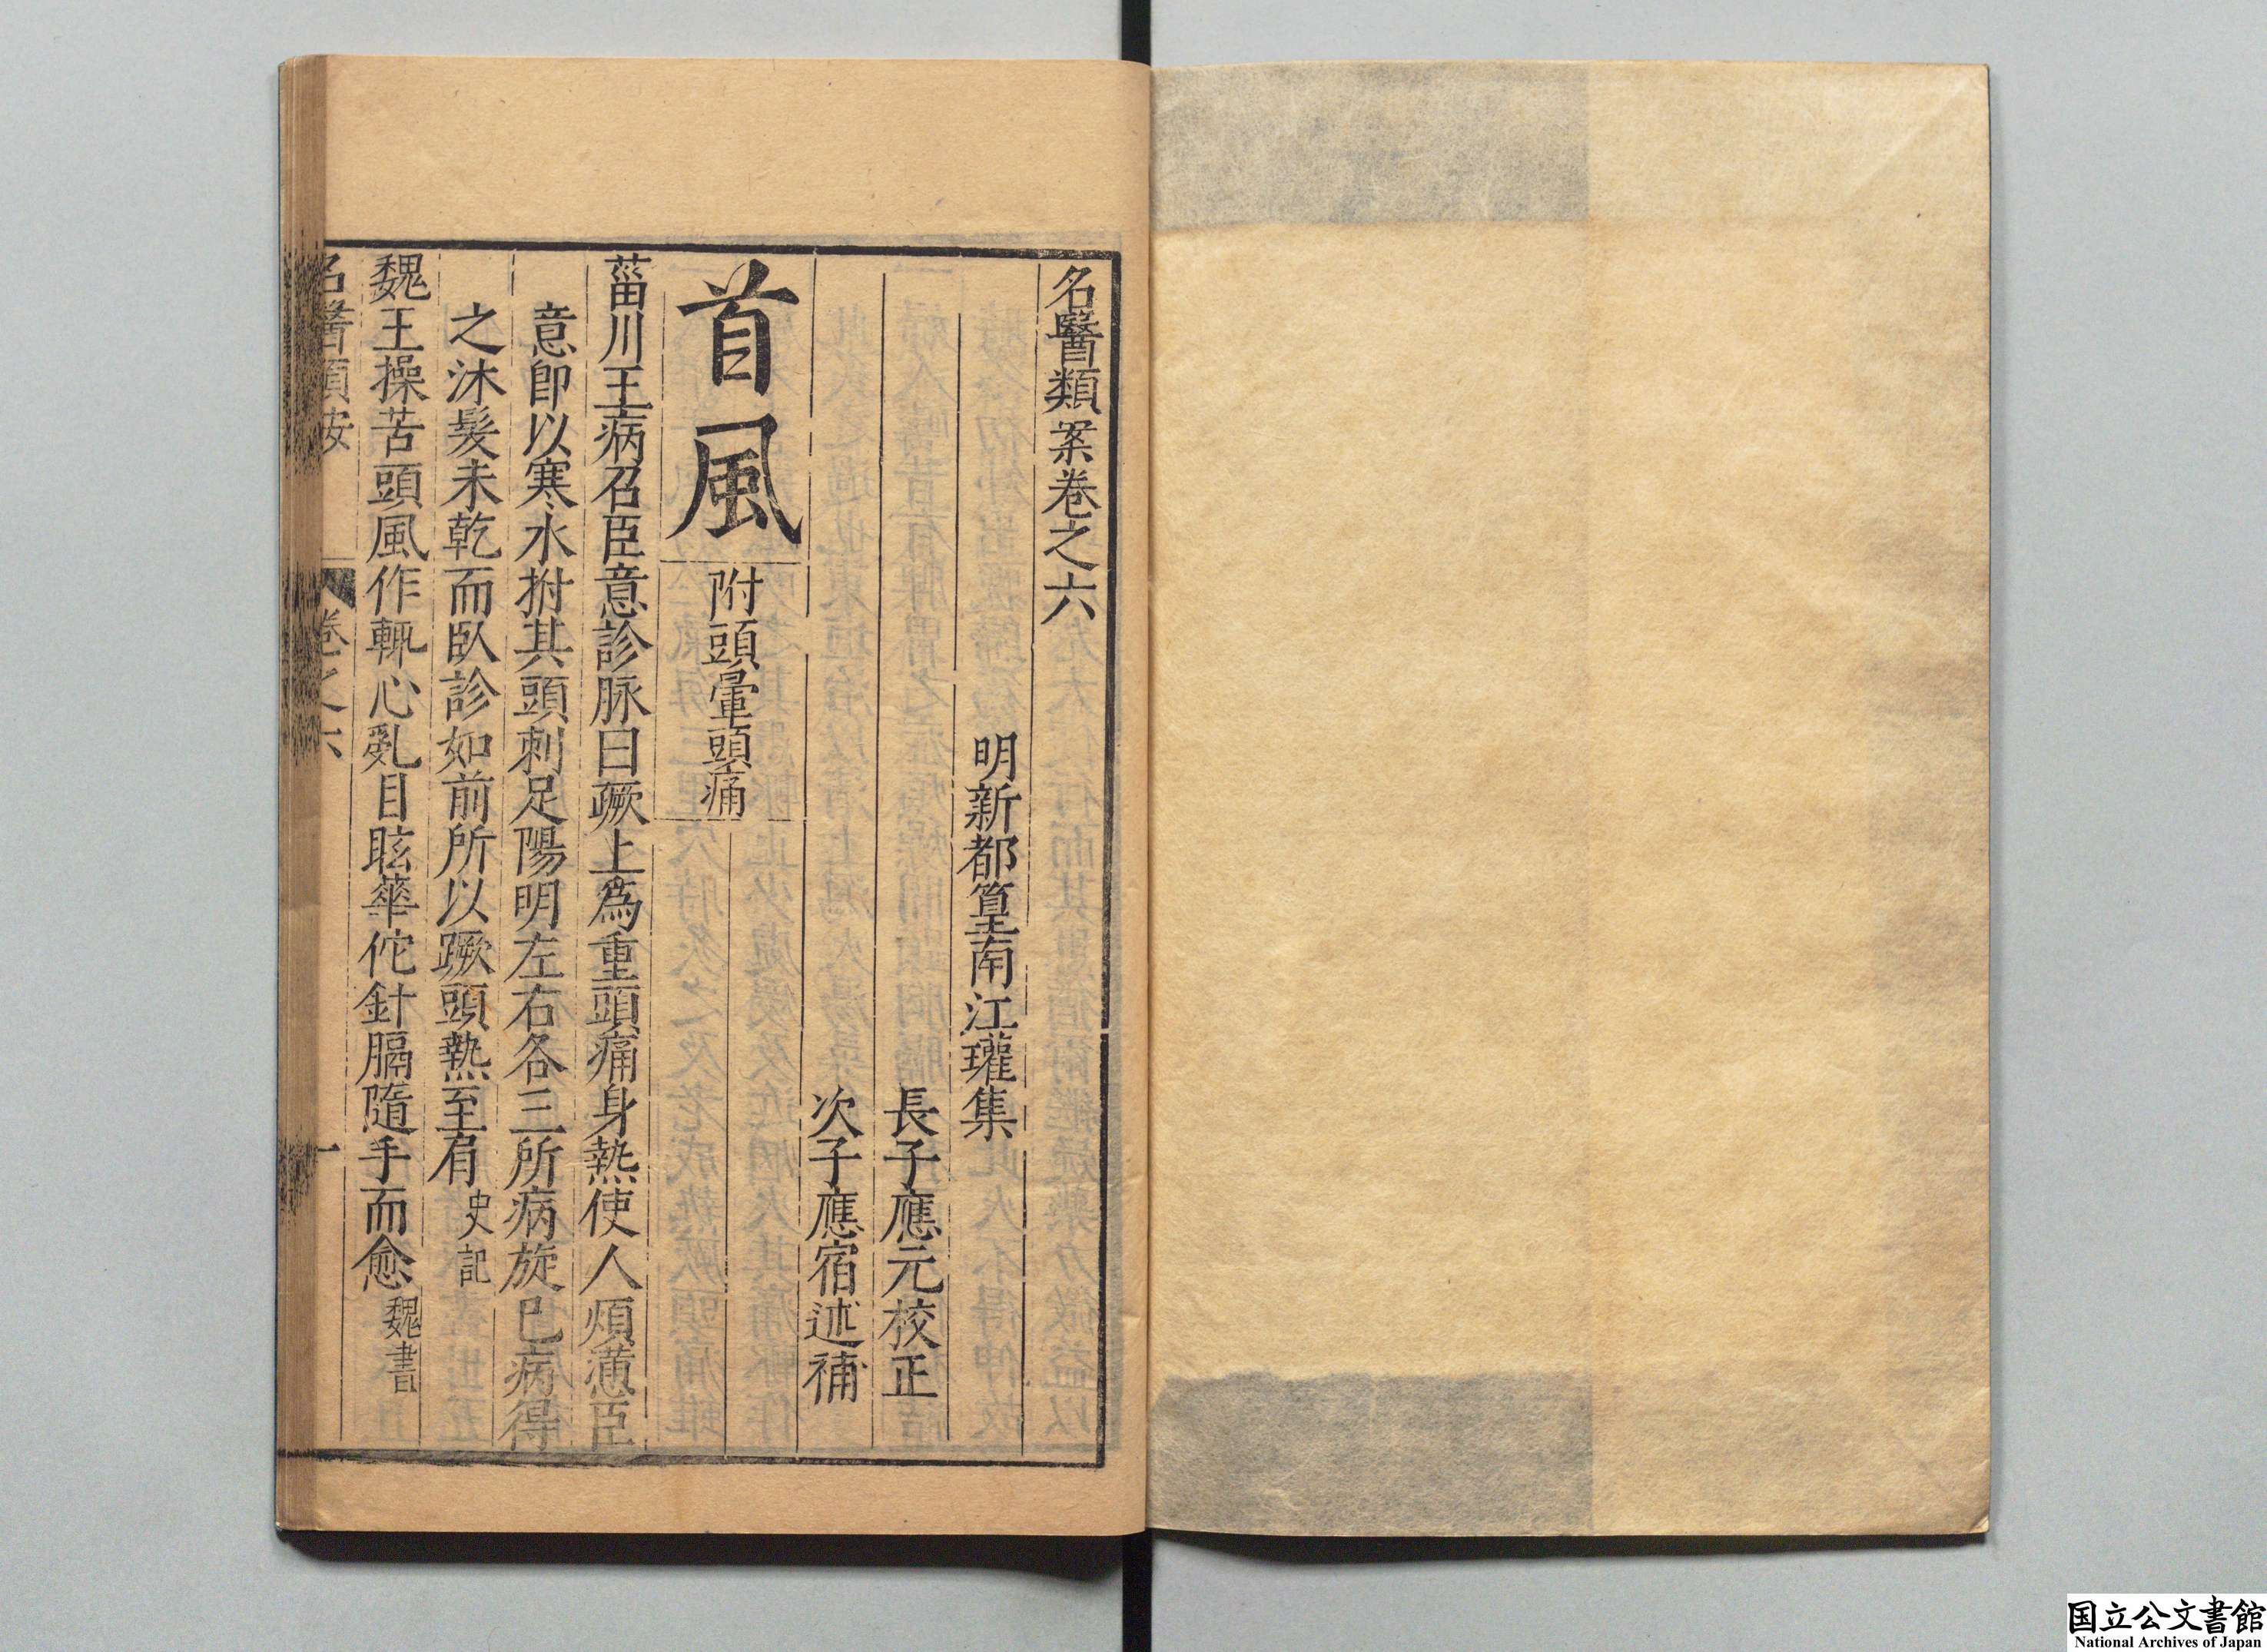 名醫類案卷之六
明新都篁南江瓘集
長子應元校正
次子應宿述補
首風 附頭暈頭痛
菑川王病召臣意診脉曰蹶上爲重頭痛身熱使人煩懣臣
意卽以寒水拊其頭刺足陽明左右各三所病旋巳病得
之沐髮未乾而臥診如前所以蹶頭熱至肩 史記
魏王操苦頭風作輒心亂目眩華佗針膈隨手而愈 魏書
名醫類案 卷之六 一
国立公文書館
National Archives of Japan